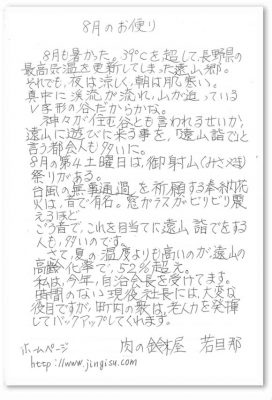 8月のお便り
8月も暑かった。39℃を超して、長野県の
最高気温を更新してしまった遠山郷。
それでも、夜は涼しく、朝は肌寒い。
真中に渓流が流れ、山が迫っている
V字形の谷だからかな。
神々が住む谷とも言われるせいか、
遠山に遊びに来る事を、「遠山詣で」と
言う都会人も多いに。
8月の第4土曜日は、御射山(みさやま)
祭りがある。
台風の無事通過を祈願する奉納花
火は、音で有名。窓ガラスがビリビリ震
えるほど
ごう音で、これを目当てに遠山詣でをする
人も、多いのです。
さて、夏の温度よりも高いのが、遠山の
高齢化率で、52%超え。
私は、今年、自治会長を受けてます。
時間のない現役社長には、大変な
役目ですが、町内の衆は、老人力を発揮
してバックアップしてくれます。
ホームページ 肉の鈴木屋 若旦那
http://www.jingisu.com/